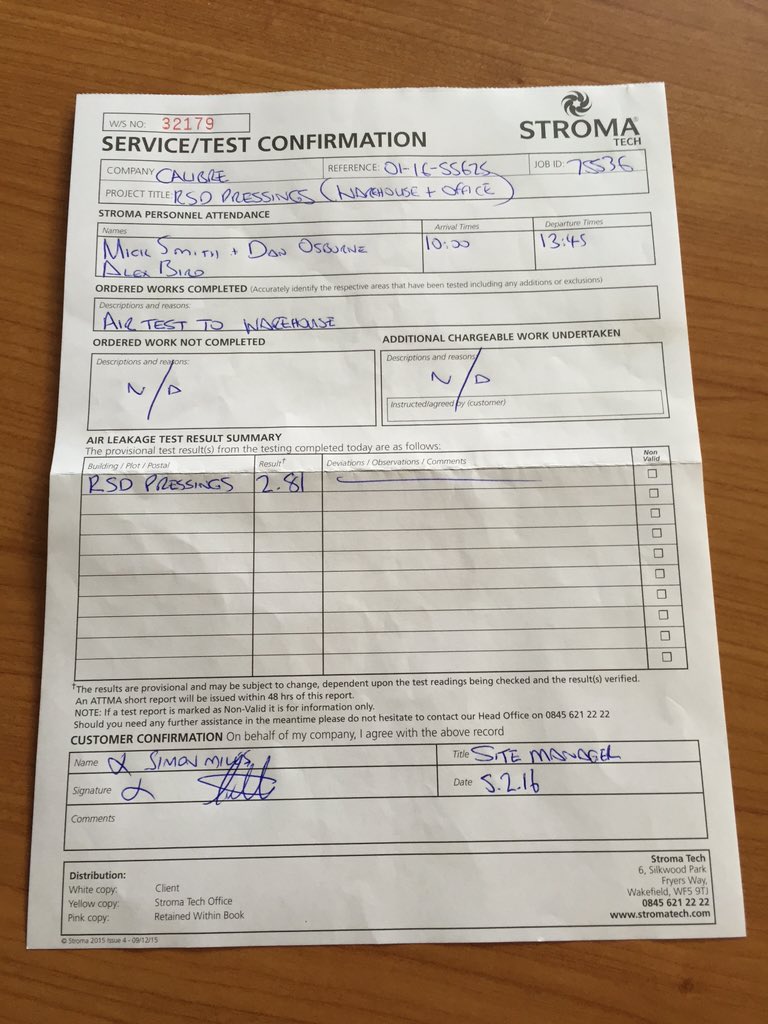 W/S NO: 32179
STROMA
TECH
SERVICE/TEST CONFIRMATION
COMPANY CALIBRE REFERENCE: 01-16-55625 JOB ID: 75536
PROJECT TITLE: RSD PRESSINGS (WAREHOUSE + OFFICE)
STROMA PERSONNEL ATTENDANCE
Names Arrival Times Departure Times
MICK SMITH + DAN OSBURNE 10:00 13:45
ALEX BIRD
ORDERED WORKS COMPLETED (Accurately identify the respective areas that have been tested including any additions or exclusions)
Descriptions and reasons:
AIR TEST TO WAREHOUSE
ORDERED WORK NOT COMPLETED ADDITIONAL CHARGEABLE WORK UNDERTAKEN
Descriptions and reasons: Descriptions and reasons
N/A N/A
Instructed/agreed by (customer)
AIR LEAKAGE TEST RESULT SUMMARY
The provisional test result(s) from the testing completed today are as follows:
Building / Plot / Postal Result† Deviations / Observations / Comments Non Valid
RSD PRESSINGS 2.81
†The results are provisional and may be subject to change, dependent upon the test readings being checked and the result(s) verified.
An ATTMA short report will be issued within 48 hrs of this report.
NOTE: If a test report is marked as Non-Valid it is for information only.
Should you need any further assistance in the meantime please do not hesitate to contact our Head Office on 0845 621 22 22
CUSTOMER CONFIRMATION On behalf of my company, I agree with the above record
Name SIMON MILLS Title SITE MANAGER
Signature Date 5.2.16
Comments
Distribution:
White copy: Client
Yellow copy: Stroma Tech Office
Pink copy: Retained Within Book
Stroma Tech
6, Silkwood Park
Fryers Way,
Wakefield, WF5 9TJ
0845 621 22 22
www.stromatech.com
© Stroma 2015 Issue 4 - 09/12/15